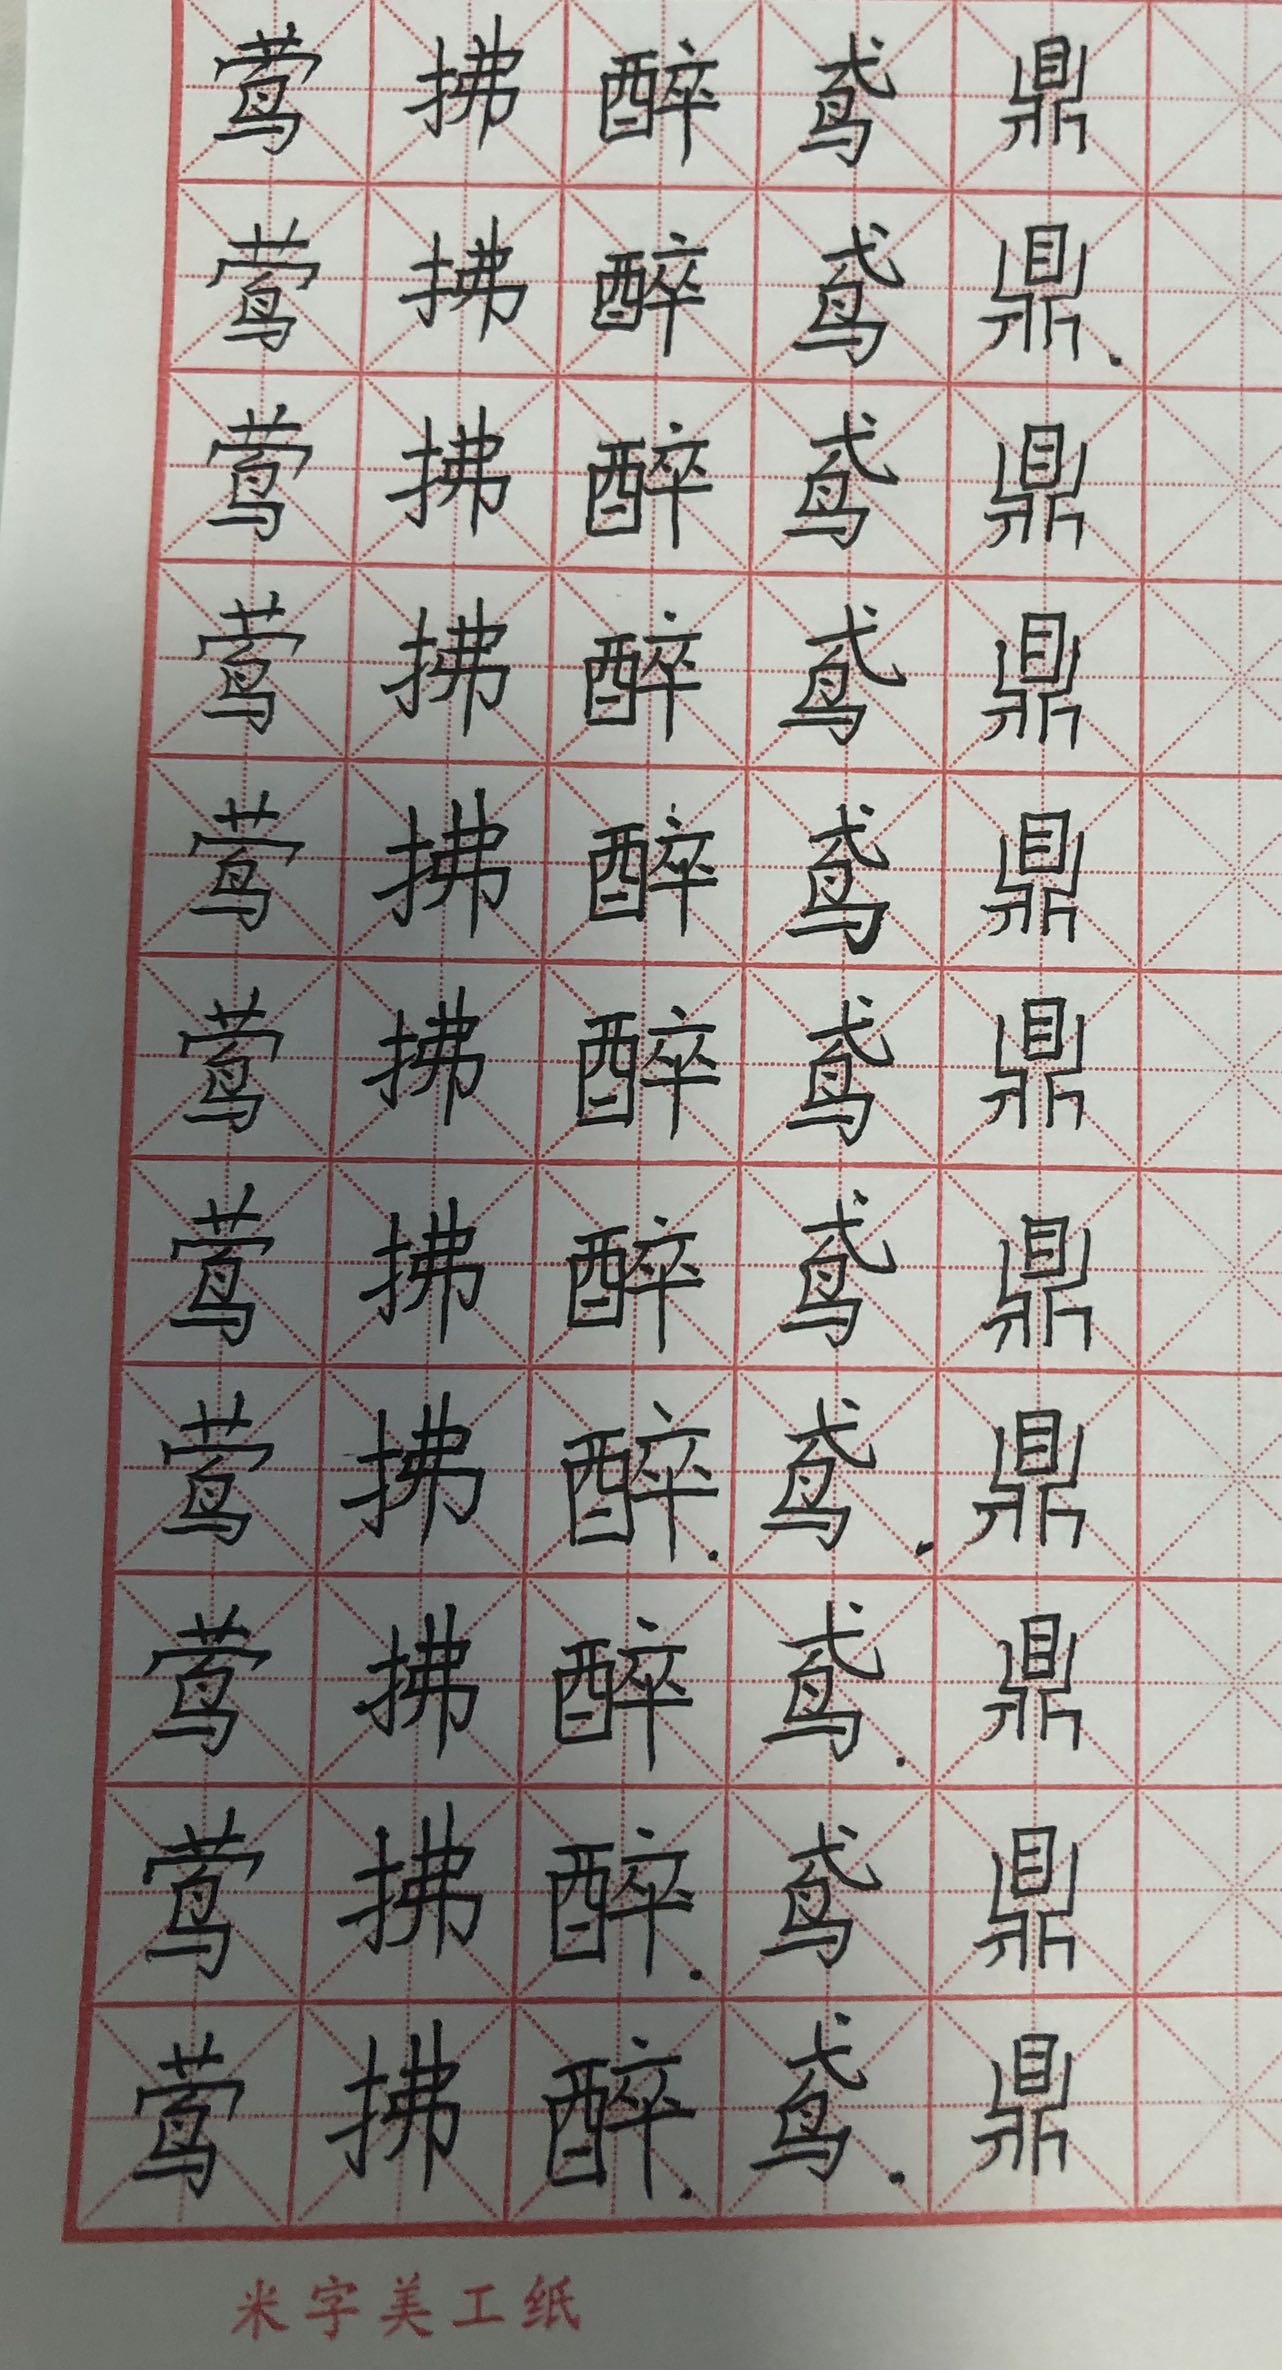 莺拂醉鸢鼎
莺拂醉鸢鼎
莺拂醉鸢鼎
莺拂醉鸢鼎
莺拂醉鸢鼎
莺拂醉鸢鼎
莺拂醉鸢鼎
莺拂醉鸢鼎
莺拂醉鸢鼎
莺拂醉鸢鼎
莺拂醉鸢鼎
米字美工纸